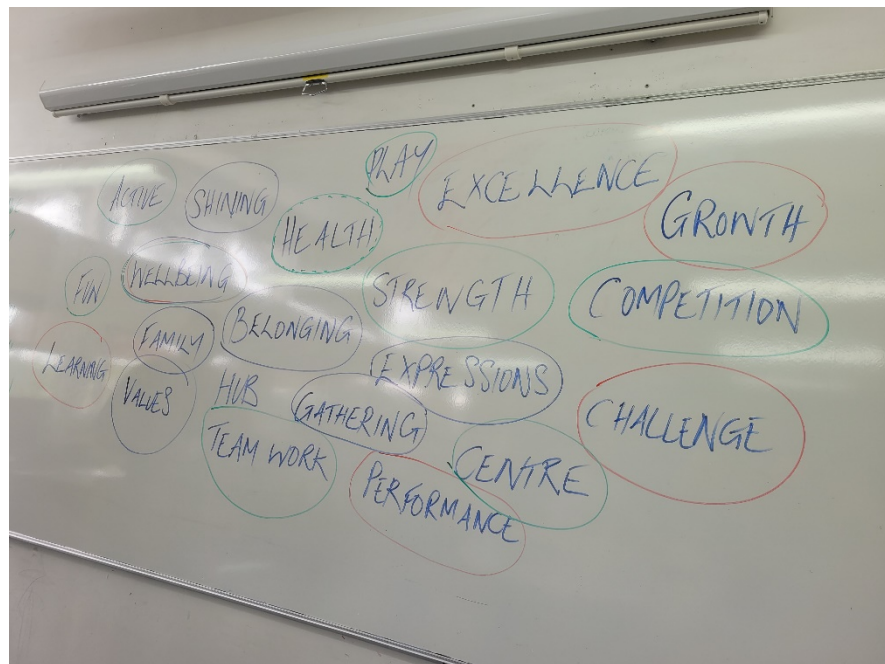 PLAY
EXCELLENCE
ACTIVE
SHINING
GROWTH
HEALTH
FUN
WELLBEING
STRENGTH
COMPETITION
LEARNING
FAMILY
BELONGING
EXPRESSIONS
VALUES
HUB
GATHERING
CHALLENGE
TEAM WORK
CENTRE
PERFORMANCE